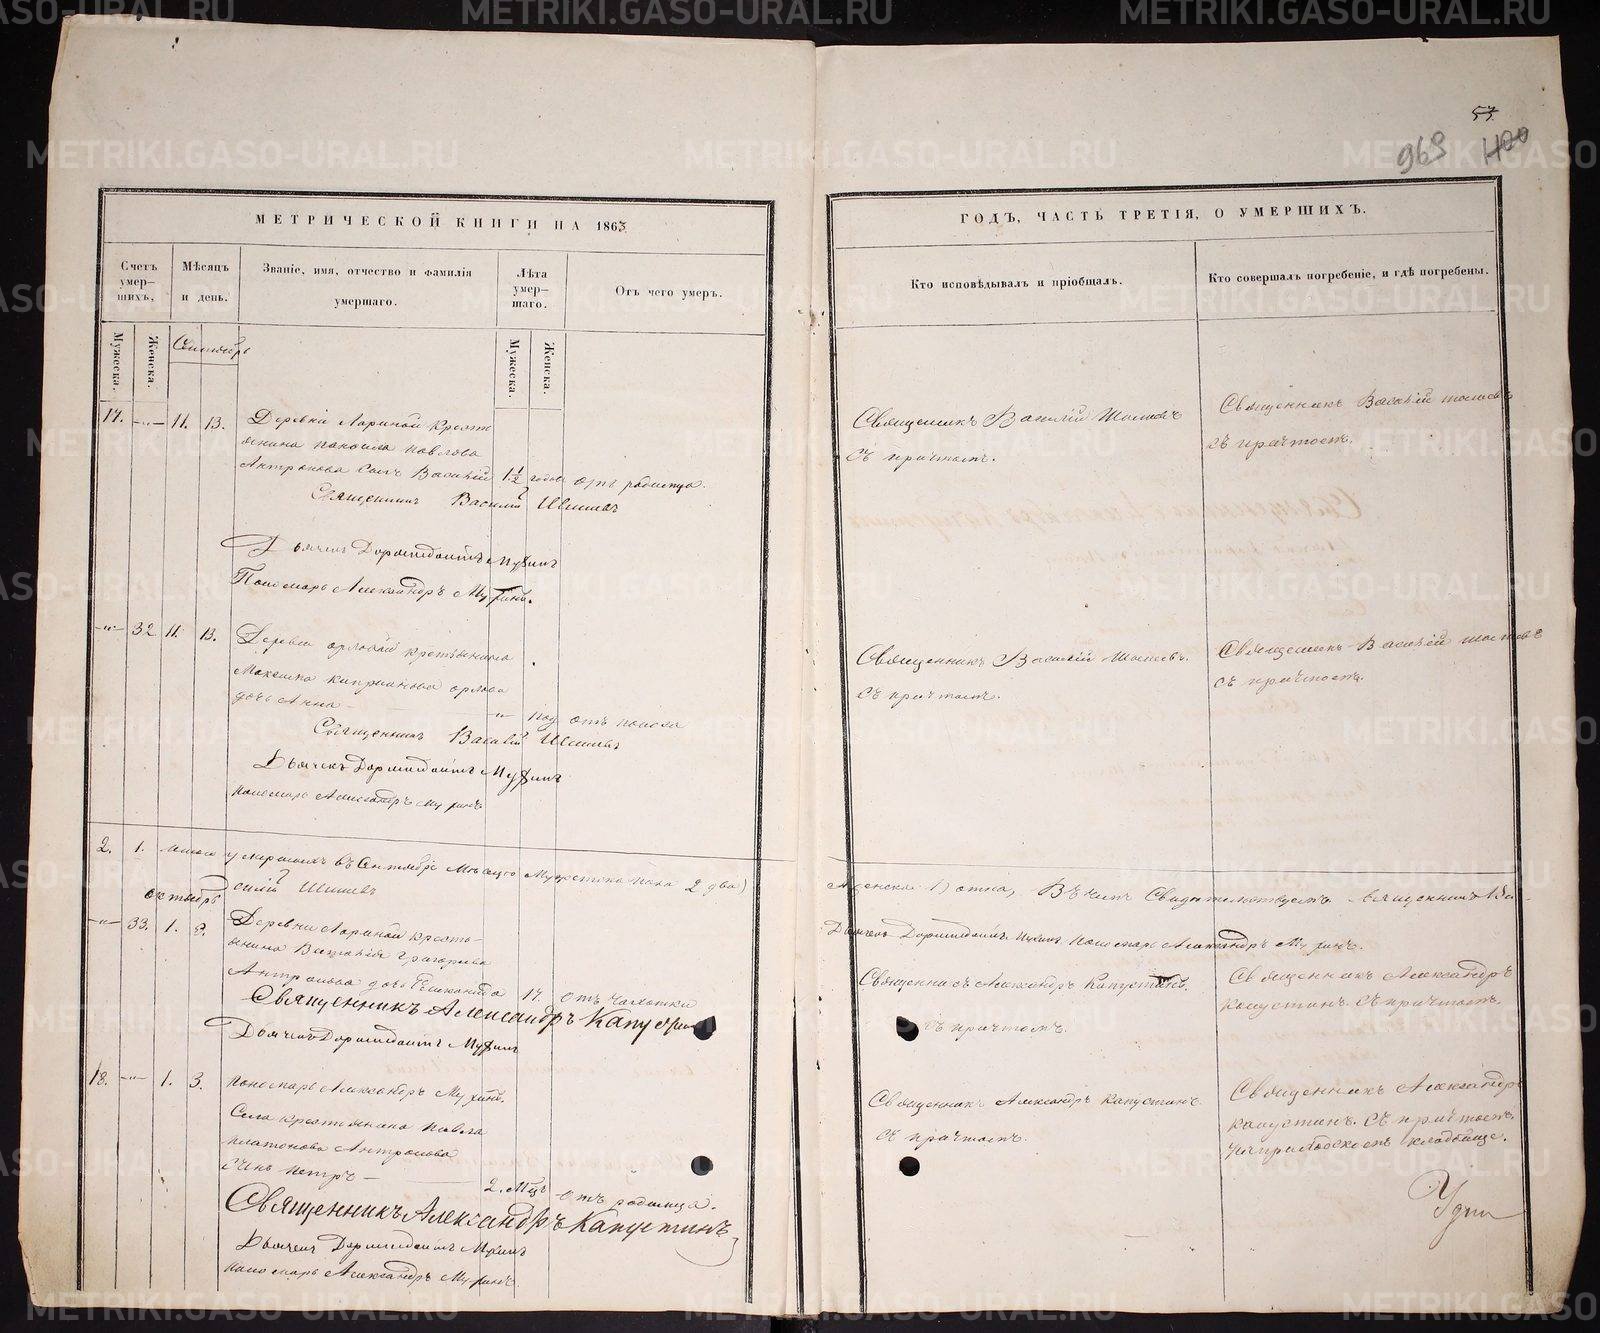 METRIKI.GASO-URAL.RU
57
969 400
МЕТРИЧЕСКОЙ КНИГИ НА 1863
ГОДЪ, ЧАСТЬ ТРЕТІЯ, О УМЕРШИХЪ.
Счетъ умершихъ.
Мѣсяцъ и день.
Званіе, имя, отчество и фамилія умершаго.
Лѣта умершаго.
Отъ чего умеръ.
Кто исповѣдывалъ и пріобщалъ.
Кто совершалъ погребеніе, и гдѣ погребены.
Мужеска.
Женска.
Сентябрь
Мужеска.
Женска.
17. -"- 11. 13. Деревни Лариной кресть
янина Павлова
Антропова сынъ Василій 1½ года отъ родимца.
Священникъ Василій Шишевъ
Дьячекъ Доримедонтъ Мухинъ
Пономарь Александръ Мухинъ.
Священникъ Василій
съ причтомъ.
Священникъ Василій
съ причтомъ.
-"- 32 11. 13. Деревни Орловой крестьянина
Максима Кипріянова Орлова
дочь Анна -"- отъ поноса
Священникъ Василій Шишевъ
Дьячекъ Доримедонтъ Мухинъ
Пономарь Александръ Мухинъ
Священникъ Василій
съ причтомъ.
Священникъ Василій
съ причтомъ.
2. 1. Итого умершихъ въ Сентябрѣ Мѣсяцѣ Мужеска пола 2 два)
Женска 1) одна, Въ чемъ Свидѣтельствуетъ священникъ Ва-
силій Шишевъ
Дьячекъ Доримедонтъ Мухинъ Пономарь Александръ Мухинъ.
Октябрь
-"- 33. 1. Деревни Лариной кресть-
янина Григорьева
Антропова дочь 17. отъ чахотки
Священникъ Александръ Капустинъ
Дьячекъ Доримедонтъ Мухинъ
пономарь Александръ Мухинъ.
Священникъ Александръ Капустинъ.
съ причтомъ.
Священникъ Александръ
Капустинъ. съ причтомъ.
18. -"- 1. 3.
Села крестьянина Павла
Платонова Антропова
сынъ Петръ - 2. Мѣс. отъ родимца.
Священникъ Александръ Капустинъ
Дьячекъ Доримедонтъ Мухинъ
пономарь Александръ Мухинъ.
Священникъ Александръ Капустинъ
съ причтомъ.
Священникъ Александръ
Капустинъ. съ причтомъ.
На приходскомъ кладбище.